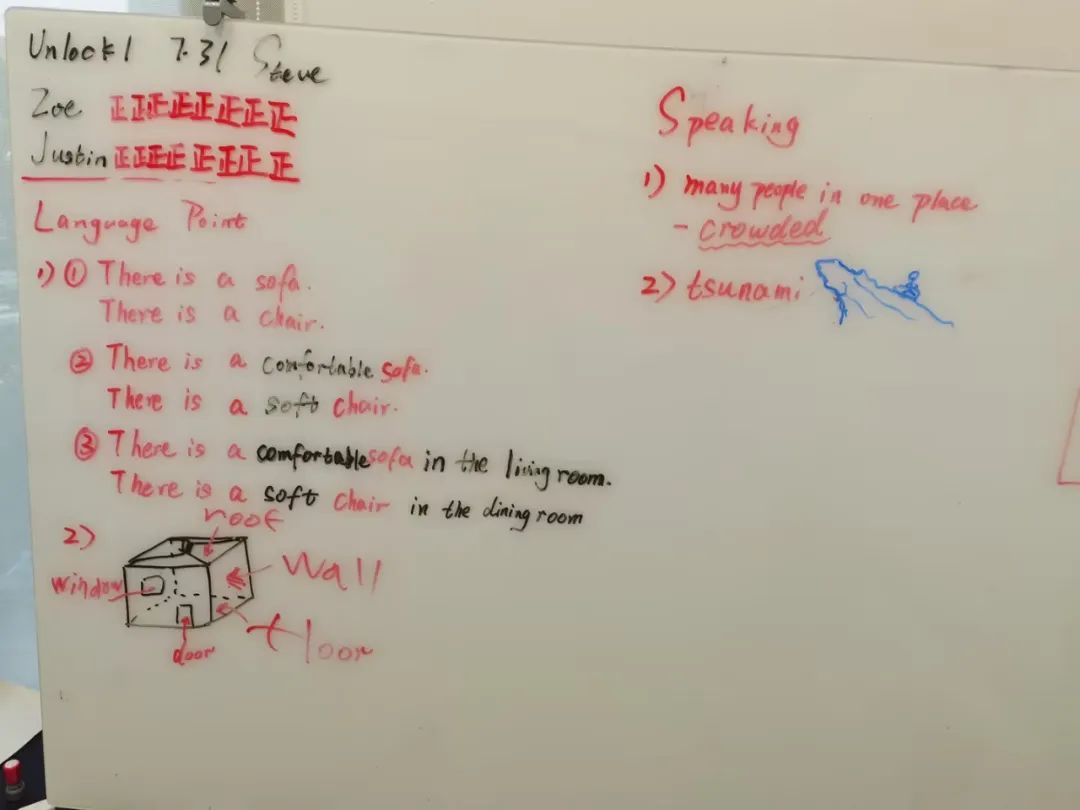 Unlock1 7.31 Steve
Zoe 正正正正正正正正
Justin 正正正正正正正正
Language Point
1) ① There is a sofa.
There is a chair.
② There is a comfortable sofa.
There is a soft chair.
③ There is a comfortable sofa in the living room.
There is a soft chair in the dining room
2)
roof
window
wall
floor
door
Speaking
1) many people in one place
- crowded
2) tsunami